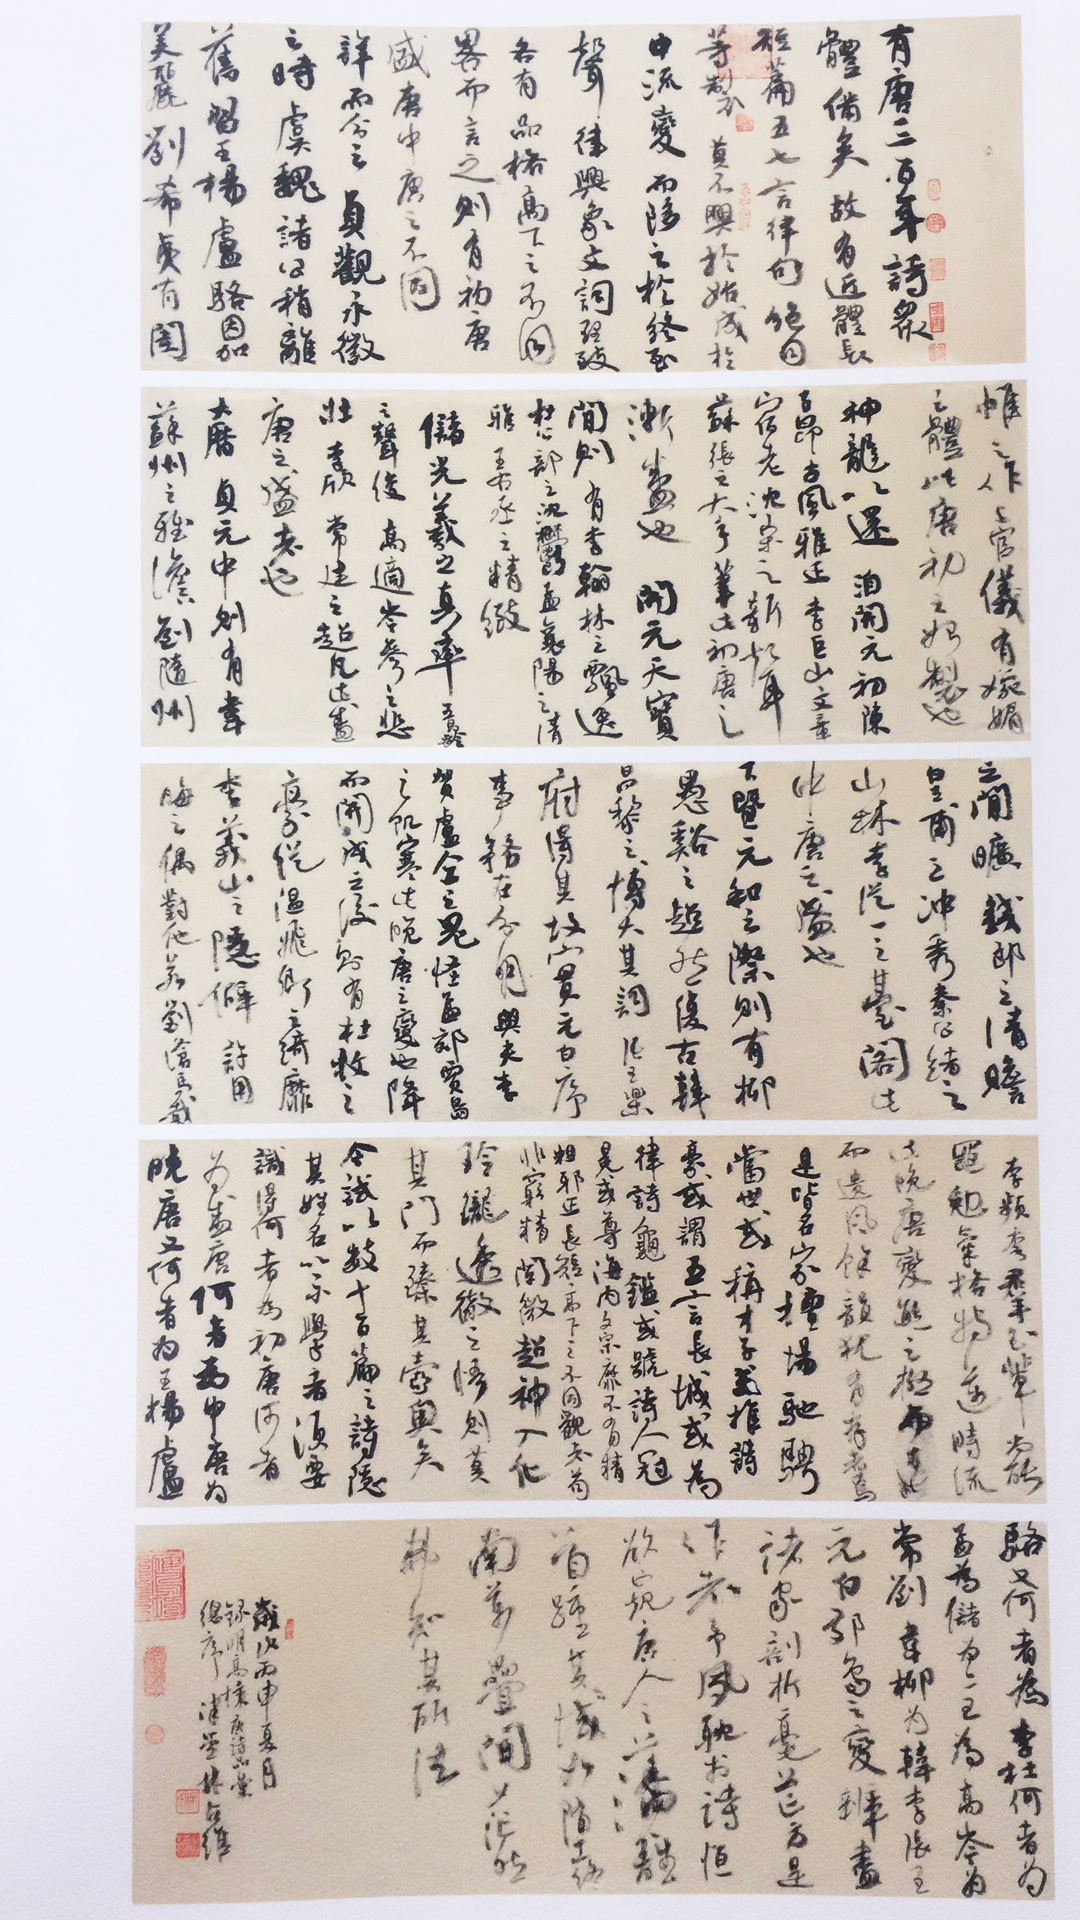 有唐三百年詩眾
體備矣故有近體長
短篇五七言律句絕句
等製莫不興於始成於
中流變而陊之於終至
聲律興象文詞理致
各有品格高下之不同
畧而言之則有初唐
盛唐中唐之不同
詳而分之貞觀永徽
之時虞魏諸公稍離
舊習王楊盧駱因加
美麗劉希夷有閨
帷之作上官儀有婉媚
之體此唐初之始製也
神龍以還洎開元初陳
子昂古風雅正李巨山文章
宿老沈宋之新聲
蘇張之大手筆此初唐之
漸盛也開元天寶
間則有李翰林之飄逸
杜工部之沈鬱孟襄陽之清
雅王右丞之精緻
儲光羲之真率王昌齡
之聲俊高適岑參之悲
壯李頎常建之超凡此盛
唐之盛者也
大曆貞元中則有韋
蘇州之雅澹劉隨州
之閒曠錢郎之清贍
皇甫之沖秀秦公緒之
山林李從一之臺閣此
中唐之盛也
下暨元和之際則有柳
愚谿之超然復古韓
昌黎之博大其詞張王樂
府得其故實元白序
事務在分明與夫李
賀盧仝之鬼怪孟郊賈島
之飢寒此晚唐之變也降
而開成之後則有杜牧之
豪縱溫飛卿之綺靡
李義山之隱僻許用
晦之偶對他若劉滄馬戴
李頻李群玉輩尚能
黽勉氣格將邁時流
此晚唐變態之極而
而遺風餘韻猶有存者焉
是皆名家擅場馳騁
當世或稱才子或推詩
豪或謂五言長城或為
律詩龜鑑或號詩人冠
冕或尊海內文宗靡不有精
粗邪正長短高下之不同觀者苟
非窮精闡微超神入化
玲瓏透徹之悟則莫
其門而臻其壼奧矣
今試以數十百篇之詩隱
其姓名以示學者須要
識得何者為初唐何者
為盛唐何者為中唐為
晚唐又何者為王楊盧
駱又何者為李杜何者為
孟為儲為二王為高岑為
常劉韋柳為韓李張王
元白郊島之變辨盡
諸家剖析毫芒方是
作者予夙耽於詩恒
欲窺唐人之藩籬
首踵其域如墮終
南萬疊間茫然
弗知其所往
歲次丙申夏月
錄明高棅唐詩品彙
總序